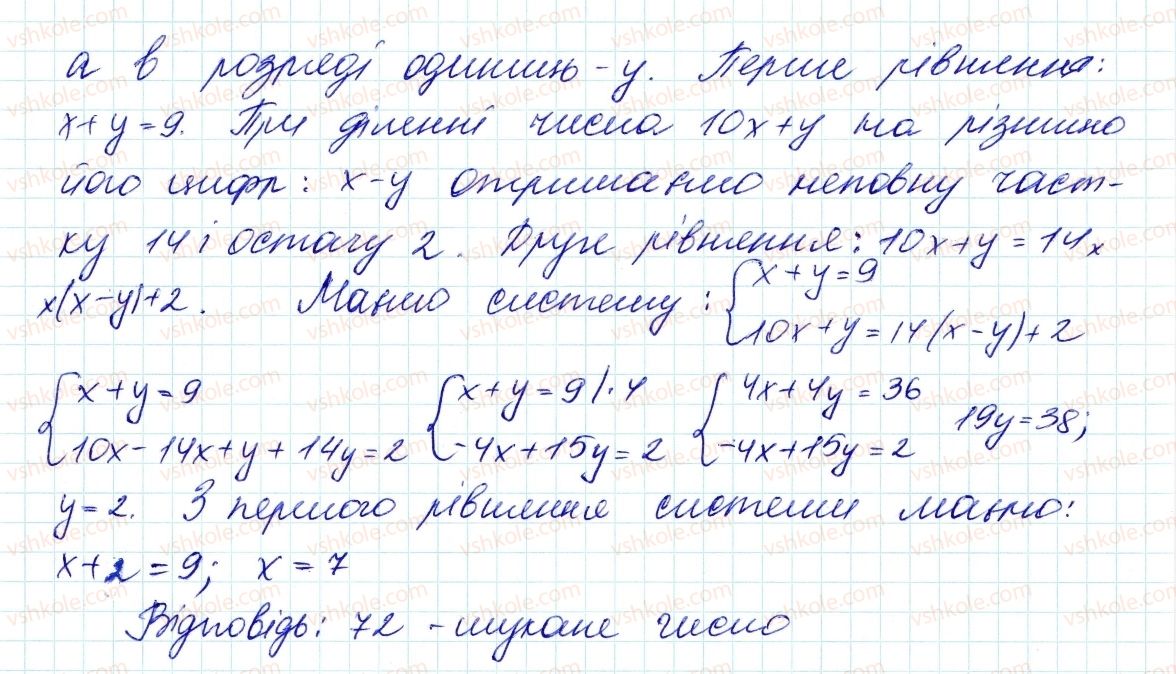 а в розряді одиниць - y. Перше рівняння:
x + y = 9. При діленні числа 10x + y на різницю
його цифр: x - y отримаємо неповну част-
ку 14 і остачу 2. Друге рівняння: 10x + y = 14 ×
× (x - y) + 2. Маємо систему: { x + y = 9
10x + y = 14(x - y) + 2
{ x + y = 9 { x + y = 9 | · 4 { 4x + 4y = 36
10x - 14x + y + 14y = 2 -4x + 15y = 2 -4x + 15y = 2 19y = 38;
y = 2. З першого рівняння системи маємо:
x + 2 = 9; x = 7
Відповідь: 72 - шукане число